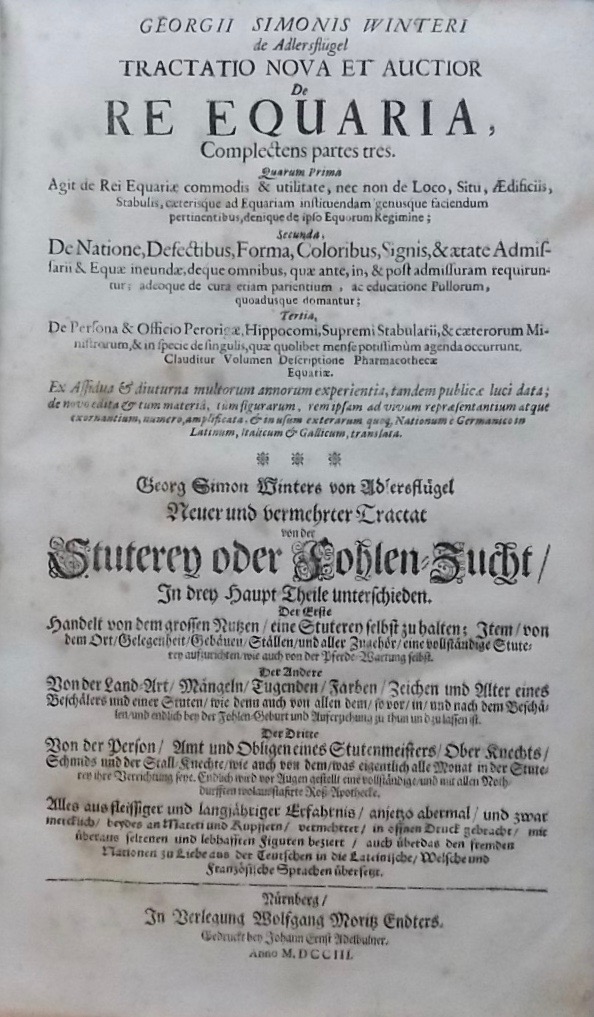 GEORGII SIMONIS WINTERI
de Adlersflügel
TRACTATIO NOVA ET AUCTIOR
De
RE EQUARIA,
Complectens partes tres.
Quarum Prima
Agit de Rei Equariæ commodis & utilitate, nec non de Loco, Situ, Ædificiis,
Stabulis, cæterisque ad Equariam instituendam genusque faciendum
pertinentibus, denique de ipso Equorum Regimine;
Secunda,
De Natione, Defectibus, Forma, Coloribus, Signis, & ætate Admis-
sarii & Equæ ineundæ, deque omnibus, quæ ante, in, & post admissuram requirun-
tur; adeoque de cura etiam parientium, ac educatione Pullorum,
quoadusque domantur;
Tertia,
De Persona & Officio Perorigæ, Hippocomi, Supremi Stabularii, & cæterorum Mi-
nistrorum, & in specie de singulis, quæ quolibet mense potissimùm agenda occurrunt.
Clauditur Volumen Descriptione Pharmacothecæ
Equariæ.
Ex Assidua & diuturna multorum annorum experientia, tandem publicæ luci data;
de novo edita & tum materiâ, tum figurarum, rem ipsam ad vivum repræsentantium atque
exornantium, numero, amplificata, & in usum exterarum quoq; Nationum è Germanico in
Latinum, Italicum & Gallicum, translata.
Georg Simon Winters von Adlersflügel
Neuer und vermehrter Tractat
von der
Stuterey oder Fohlen-Zucht/
In drey Haupt Theile unterschieden.
Der Erste
Handelt von dem grossen Nutzen/ eine Stuterey selbst zu halten; Item/ von
dem Ort/ Gelegenheit/ Gebäuen/ Ställen/ und aller Zugehör/ eine vollständige Stute-
rey aufzurichten/ wie auch von der Pferde-Wartung selbst.
Der Andere
Von der Land-Art/ Mängeln/ Tugenden/ Farben/ Zeichen und Alter eines
Beschälers und einer Stuten/ wie denn auch von allen dem/ so vor/ in/ und nach dem Beschä-
len/ und endlich bey der Fohlen-Geburt und Auferziehung zu thun und zu lassen ist.
Der Dritte
Von der Person/ Amt und Obligen eines Stutenmeisters/ Ober Knechts/
Schmids und der Stall-Knechte/ wie auch von dem/ was eigentlich alle Monat in der Stute-
rey ihre Verrichtung seye. Endlich wird vor Augen gestellt eine vollständige/ und mit allen Noth-
durfften wolausstaffirte Roß Apothecke.
Alles aus fleissiger und langjähriger Erfahrnis/ anjetzo abermal/ und zwar
mercklich/ beydes an Materi und Kupffern/ vermehrter/ in offnen Druck gebracht/ mit
überaus seltenen und lebhafften Figuren beziert/ auch überdas den fremden
Nationen zu Liebe aus der Teutschen in die Lateinische/ Welsche und
Französische Sprachen übersetzt.
Nürnberg/
In Verlegung Wolfgang Moritz Endters.
Gedruckt bey Johann Ernst Adelbulner.
Anno M. DCCIII.